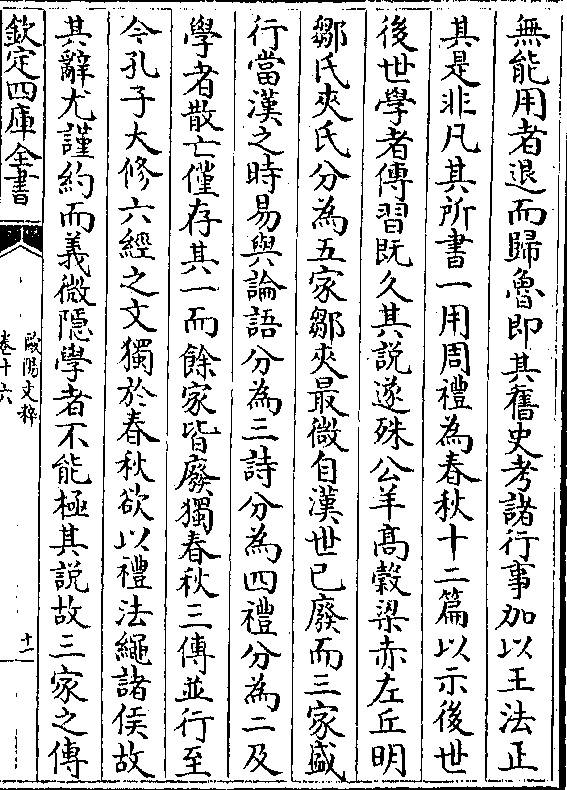 無能用者退而歸魯即其舊史考諸行事加以王法正
其是非凡其所書一用周禮為春秋十二篇以示後世
後世學者傳習既久其說遂殊公羊高糓梁赤左丘明
鄒氏夾氏分為五家鄒夾最微自漢世已廢而三家盛
行當漢之時易與論語分為三詩分為四禮分為二及
學者散亡僅存其一而餘家皆廢獨春秋三傳並行至
今孔子大修六經之文獨於春秋欲以禮法繩諸侯故
其辭尤謹約而義微隱學者不能極其說故三家之傳
欽定四庫全書
歐陽文粹
卷十六
十一